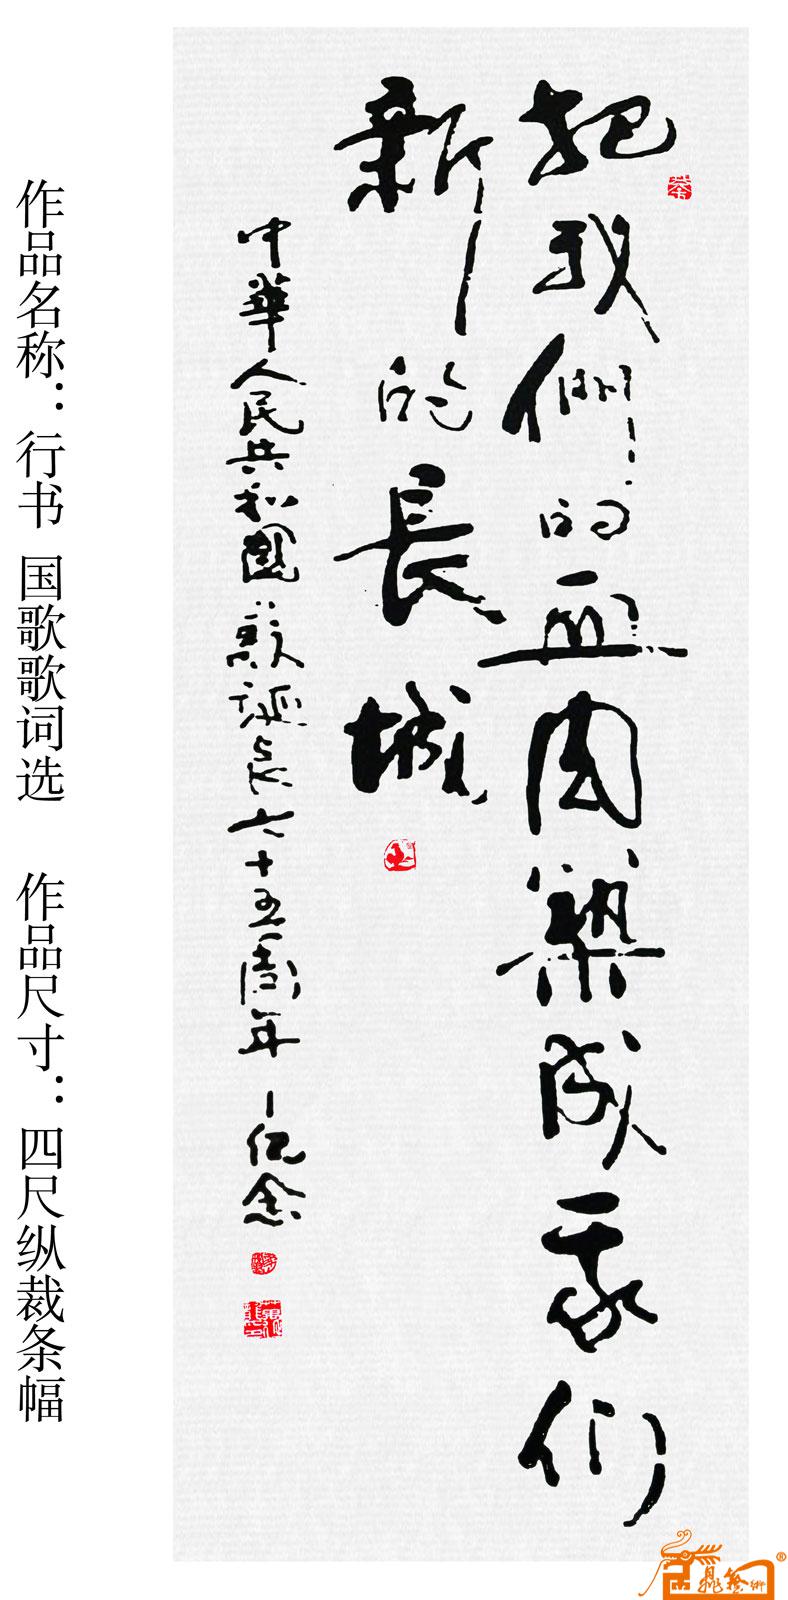 把我們的血肉築成我们
新的長城
中華人民共和國誕辰六十五周年紀念
作品名称：行书 国歌歌词选 作品尺寸：四尺纵裁条幅